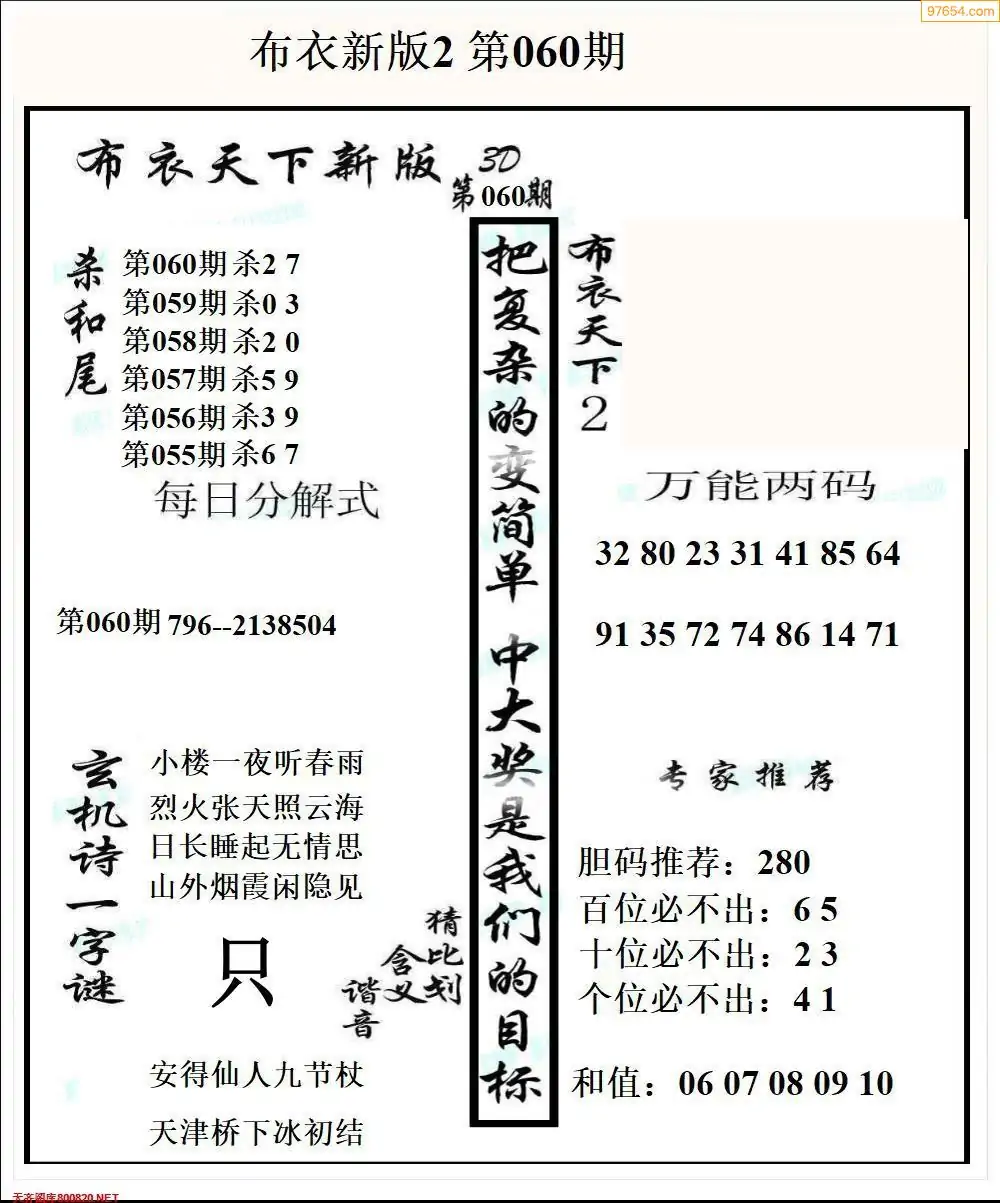 97654.com
布衣新版2 第060期
布衣天下新版
3D
第060期
杀和尾
第060期杀2 7
第059期杀0 3
第058期杀2 0
第057期杀5 9
第056期杀3 9
第055期杀6 7
每日分解式
第060期 796--2138504
玄机诗一字谜
小楼一夜听春雨
烈火张天照云海
日长睡起无情思
山外烟霞闲隐见
只
猜比划
含义
谐音
安得仙人九节杖
天津桥下冰初结
把复杂的变简单 中大奖是我们的目标
布衣天下2
万能两码
32 80 23 31 41 85 64
91 35 72 74 86 14 71
专家推荐
胆码推荐：280
百位必不出：6 5
十位必不出：2 3
个位必不出：4 1
和值：06 07 08 09 10
天齐图库800820.NET